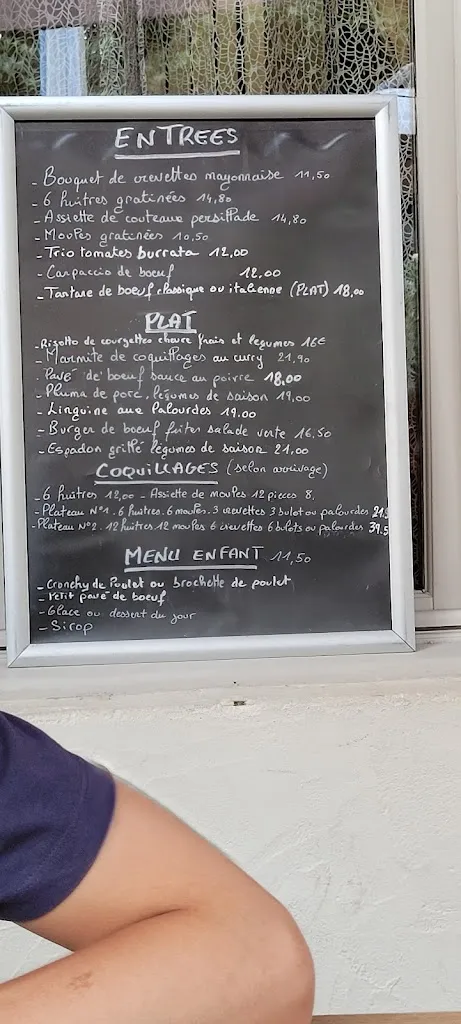 ENTREES
- Bouquet de crevettes mayonnaise 11,50
- 6 huitres gratinées 14,80
- Assiette de couteaux persillade 14,80
- Moules gratinées 10,50
- Trio tomates burrata 12,00
- Carpaccio de boeuf 12,00
- Tartare de boeuf classique ou italienne (PLAT) 18,00
PLAT
- Risotto de courgettes chevre frais et legumes 16€
- Marmite de coquillages au curry 21,90
- Pavé de boeuf sauce au poivre 18,00
- Pluma de porc, légumes de saison 19,00
- Linguine aux Palourdes 19.00
- Burger de boeuf frites salade verte 16,50
- Espadon grillé légumes de saison 21,00
COQUILLAGES (selon arrivage)
- 6 huitres 12,00 - Assiette de moules 12 pieces 8,
- Plateau N°1. 6 huitres. 6 moules. 3 crevettes 3 bulot ou palourdes 21,
- Plateau N°2. 12 huitres 12 moules 6 crevettes 6 bulots ou palourdes 39,5
MENU ENFANT 11,50
- Cronchy de Poulet ou brochette de poulet
- Petit pavé de boeuf
- Glace ou dessert du jour
- Sirop